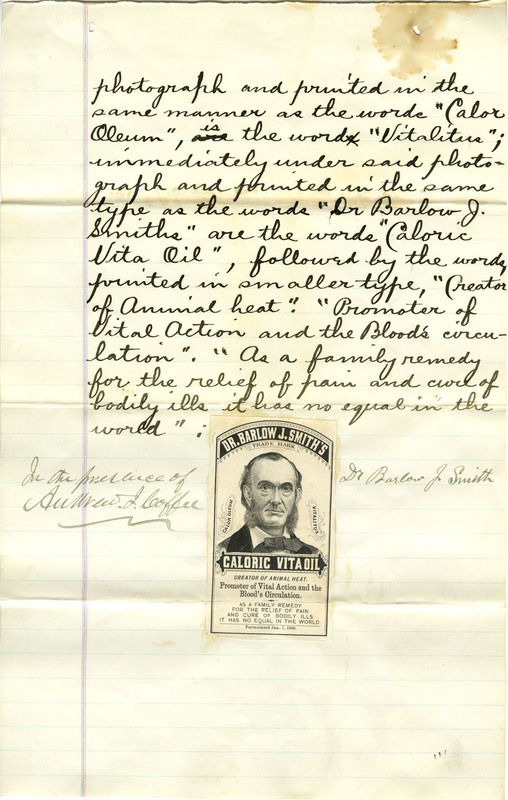 photograph and printed in the
same manner as the words "Calor
Oleum", is the word "Vitalitus";
immediately under said photo-
graph and printed in the same
type as the words "Dr Barlow J.
Smiths" are the words "Caloric
Vita Oil", followed by the words,
printed in smaller type, "Creator
of Animal heat". "Promoter of
Vital Action and the Blood's circu-
lation". "As a family remedy
for the relief of pain and cure of
bodily ills it has no equal in the
world".
In the presence of
Andrew J. Coffee
Dr Barlow J. Smith
DR. BARLOW J. SMITH'S
TRADE MARK
CALOR OLEUM
VITALITUS
CALORIC VITA OIL
CREATOR OF ANIMAL HEAT.
Promoter of Vital Action and the
Blood's Circulation.
AS A FAMILY REMEDY
FOR THE RELIEF OF PAIN
AND CURE OF BODILY ILLS
IT HAS NO EQUAL IN THE WORLD
Formulated Jan. 1,